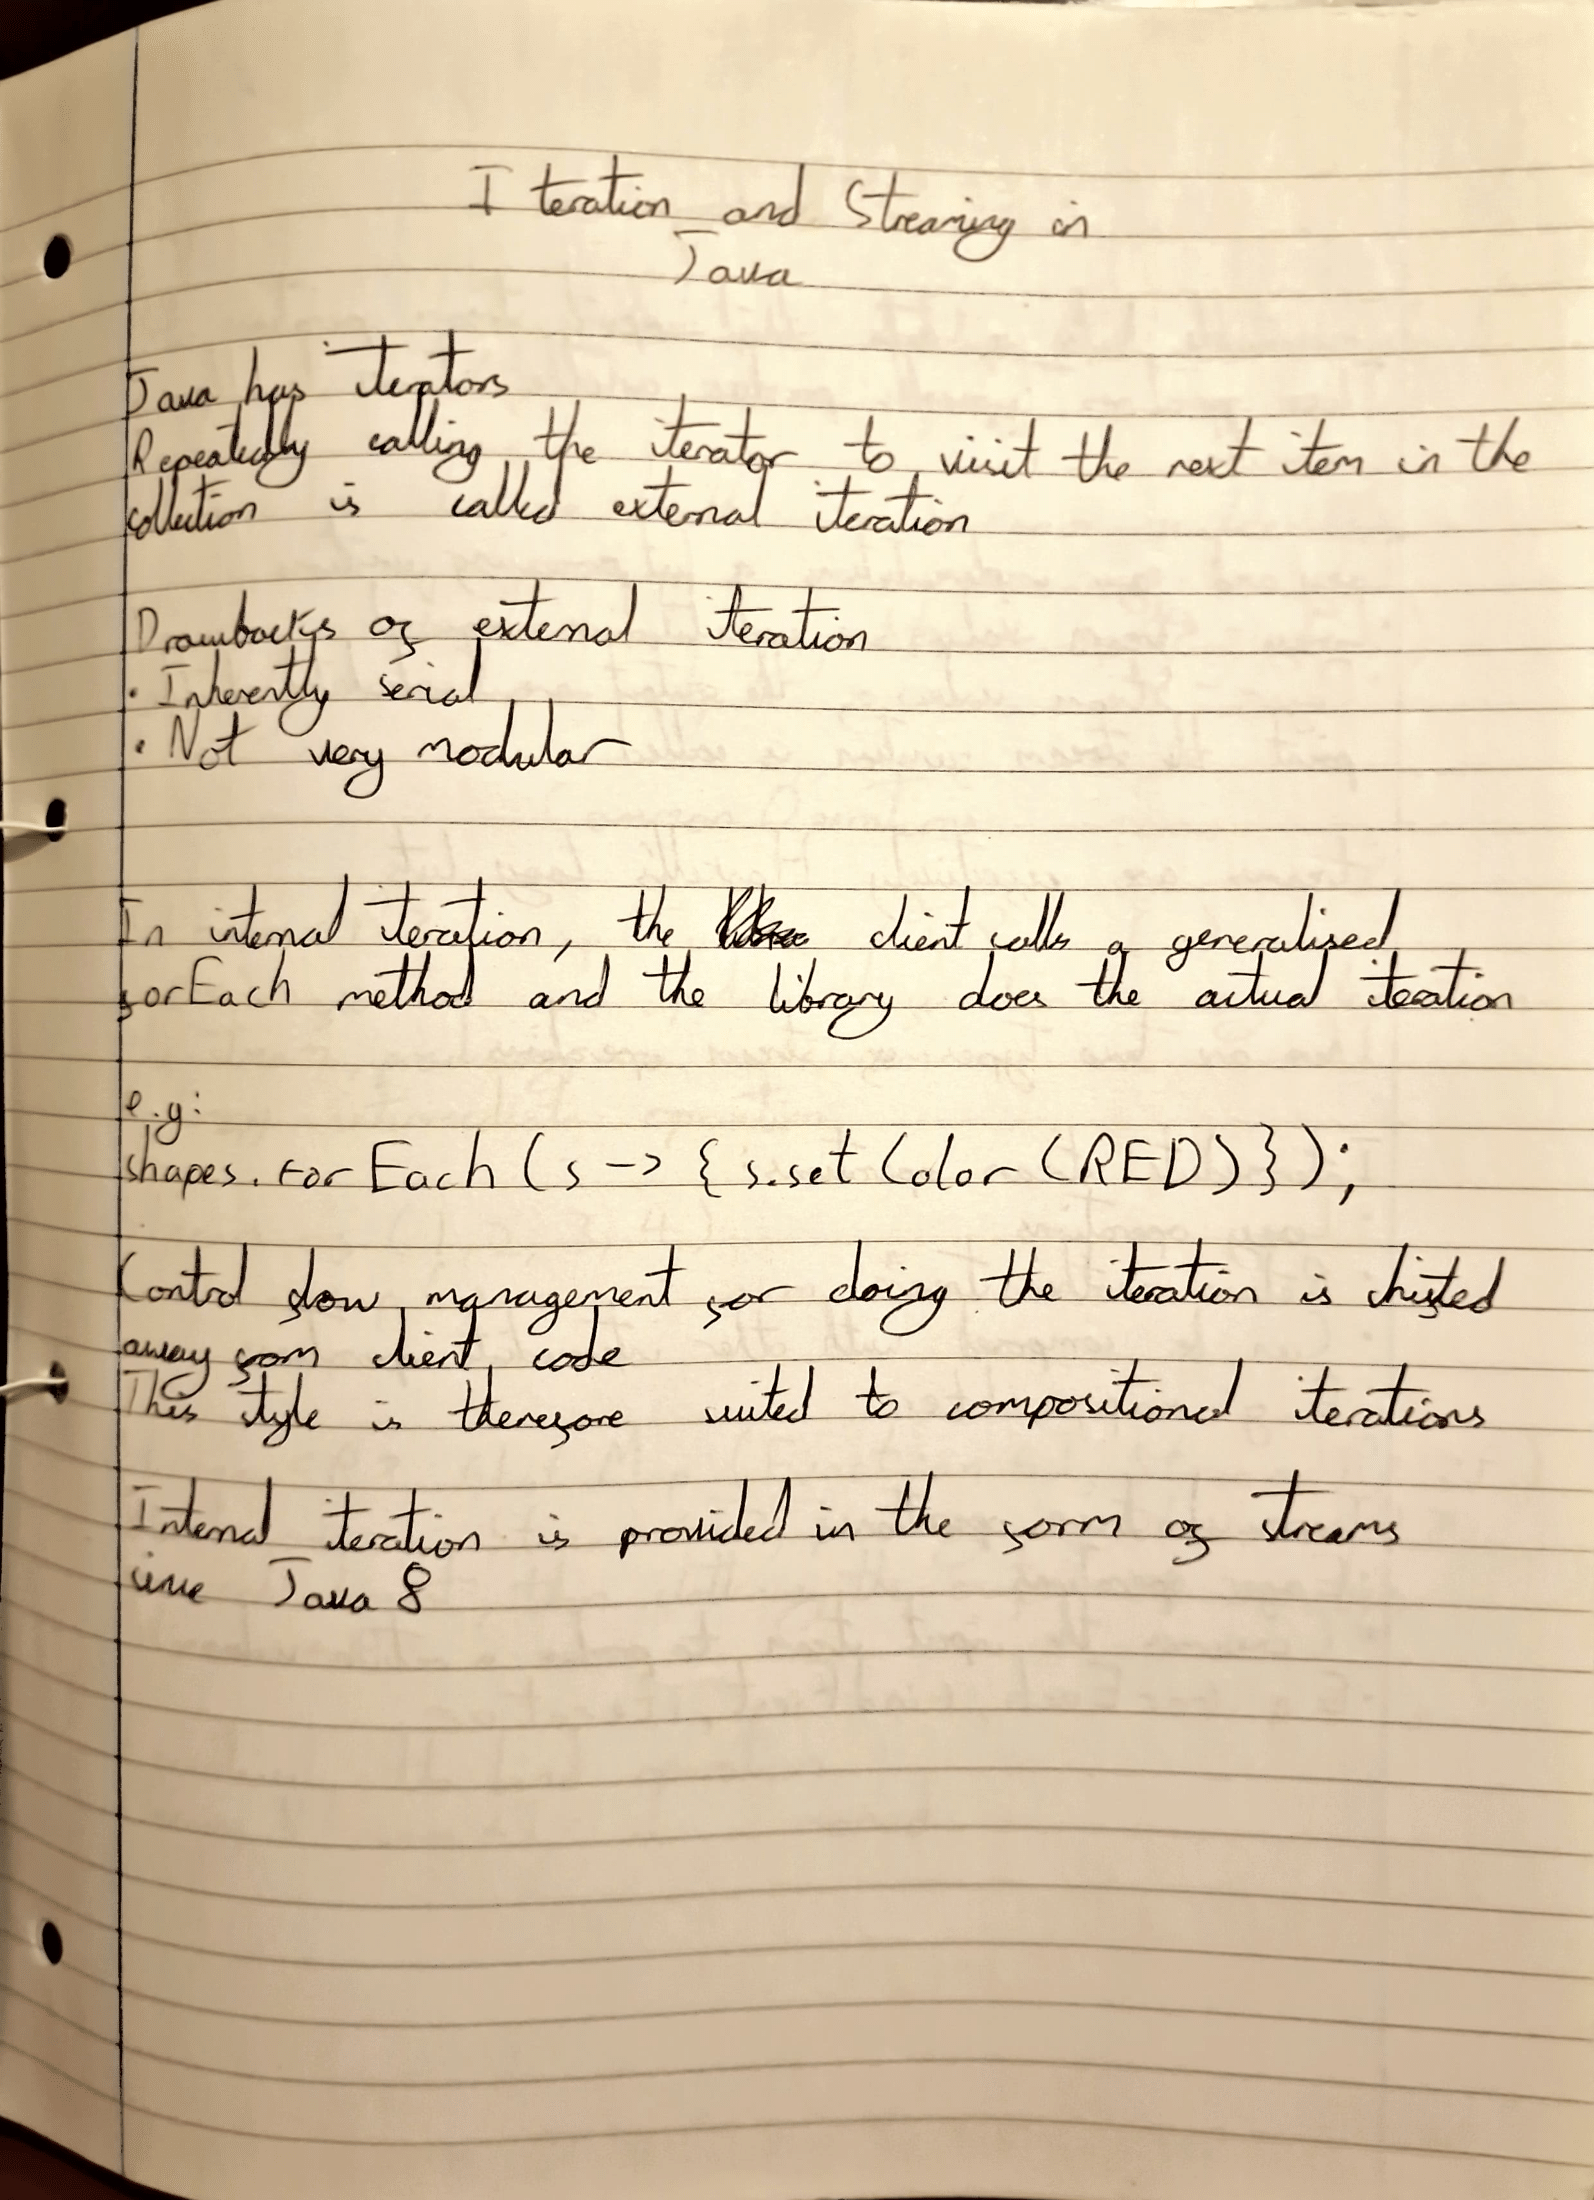 Iteration and Streaming in
Java
Java has iterators
Repeatedly calling the iterator to visit the next item in the
collection is called external iteration
Drawbacks of external iteration
• Inherently serial
• Not very modular
In internal iteration, the client calls a generalised
forEach method and the library does the actual iteration
e.g:
shapes.forEach(s -> {s.setColor(RED)});
Control flow management for doing the iteration is shifted
away from client code
This style is therefore suited to compositional iterations
Internal iteration is provided in the form of streams
since Java 8